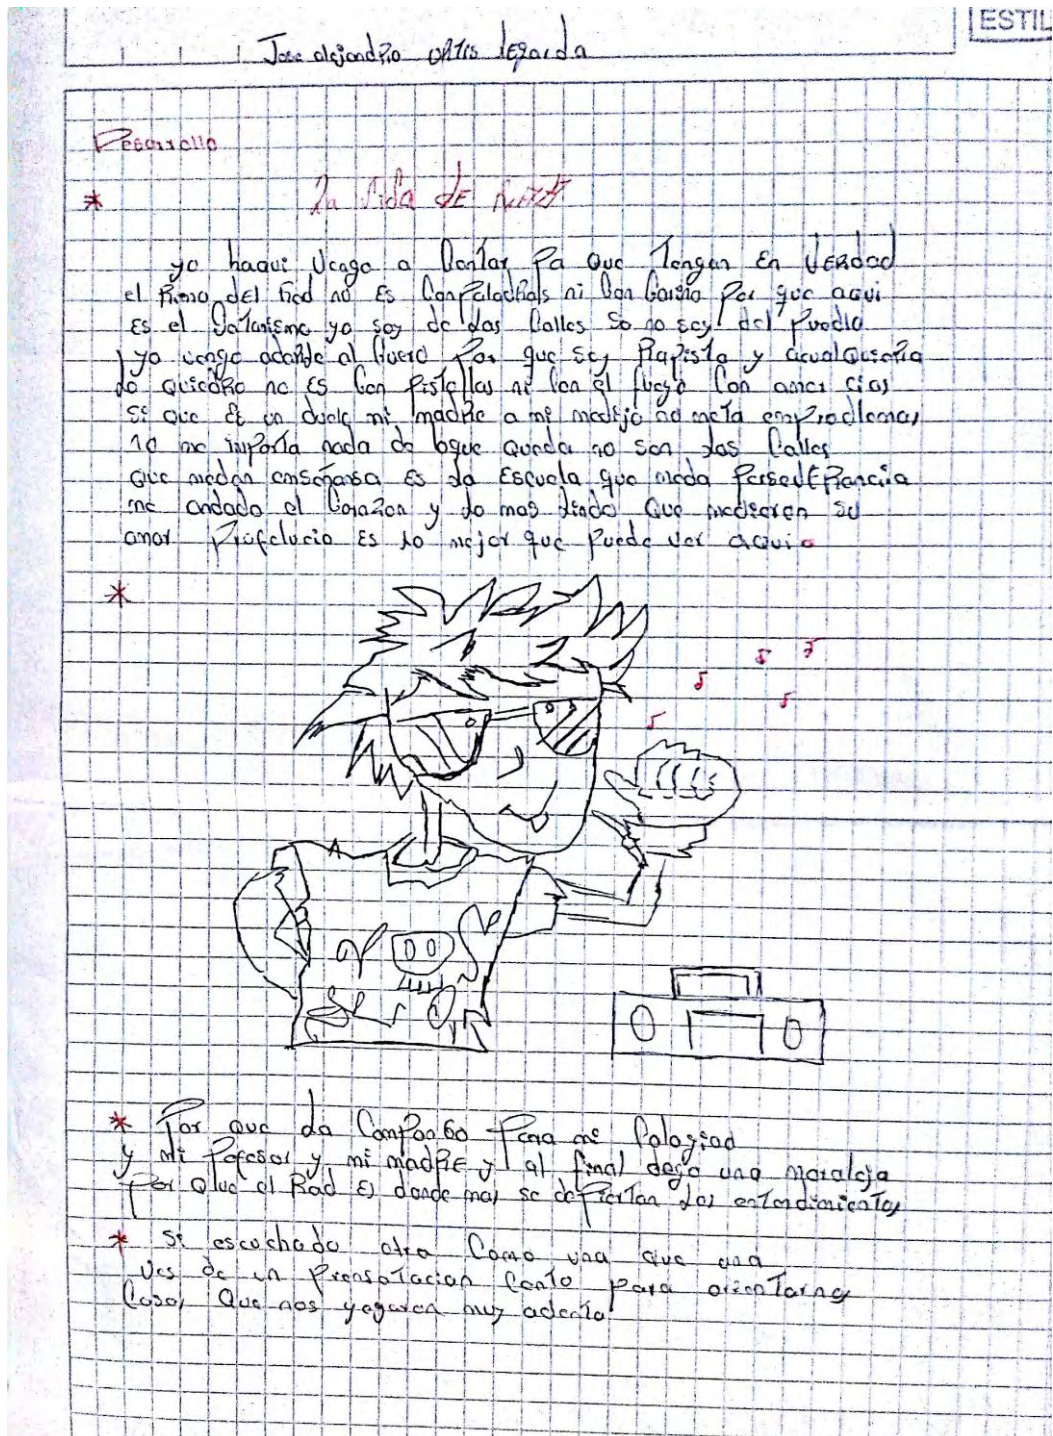 ESTIL
Jose alejandro ortis legarda
Desarrollo
*
La vida del
yo haqui vengo a Cantar Pa que Tengan En VERdad
el no Es ni Con Cariño Por que aqui
Es el yo soy de las Calles so no soy del Pueblo
yo vengo adonde al Por que soy Rapista y acualQuiera
lo quiera no es Con Pistollas ni Con el fuego Con amor
si que Es un duelo mi madre a mi medijo no meta enproblemas
no me inporta nada de loque Queda no son las Calles
que medan enseñansa es la Escuela que meda
me andado el Corazon y lo mas lindo Que medieren su
amor Profelucio Es lo mejor que puede ver aqui
*
* Por que la para mi
y mi Pofesor y mi madre y al final dejo una moraleja
Por que el es donde mas se los entendimientos
* si escuchado otra Como una que una
ves de un Canto para orientarnos
Cosas Que nos muy adento